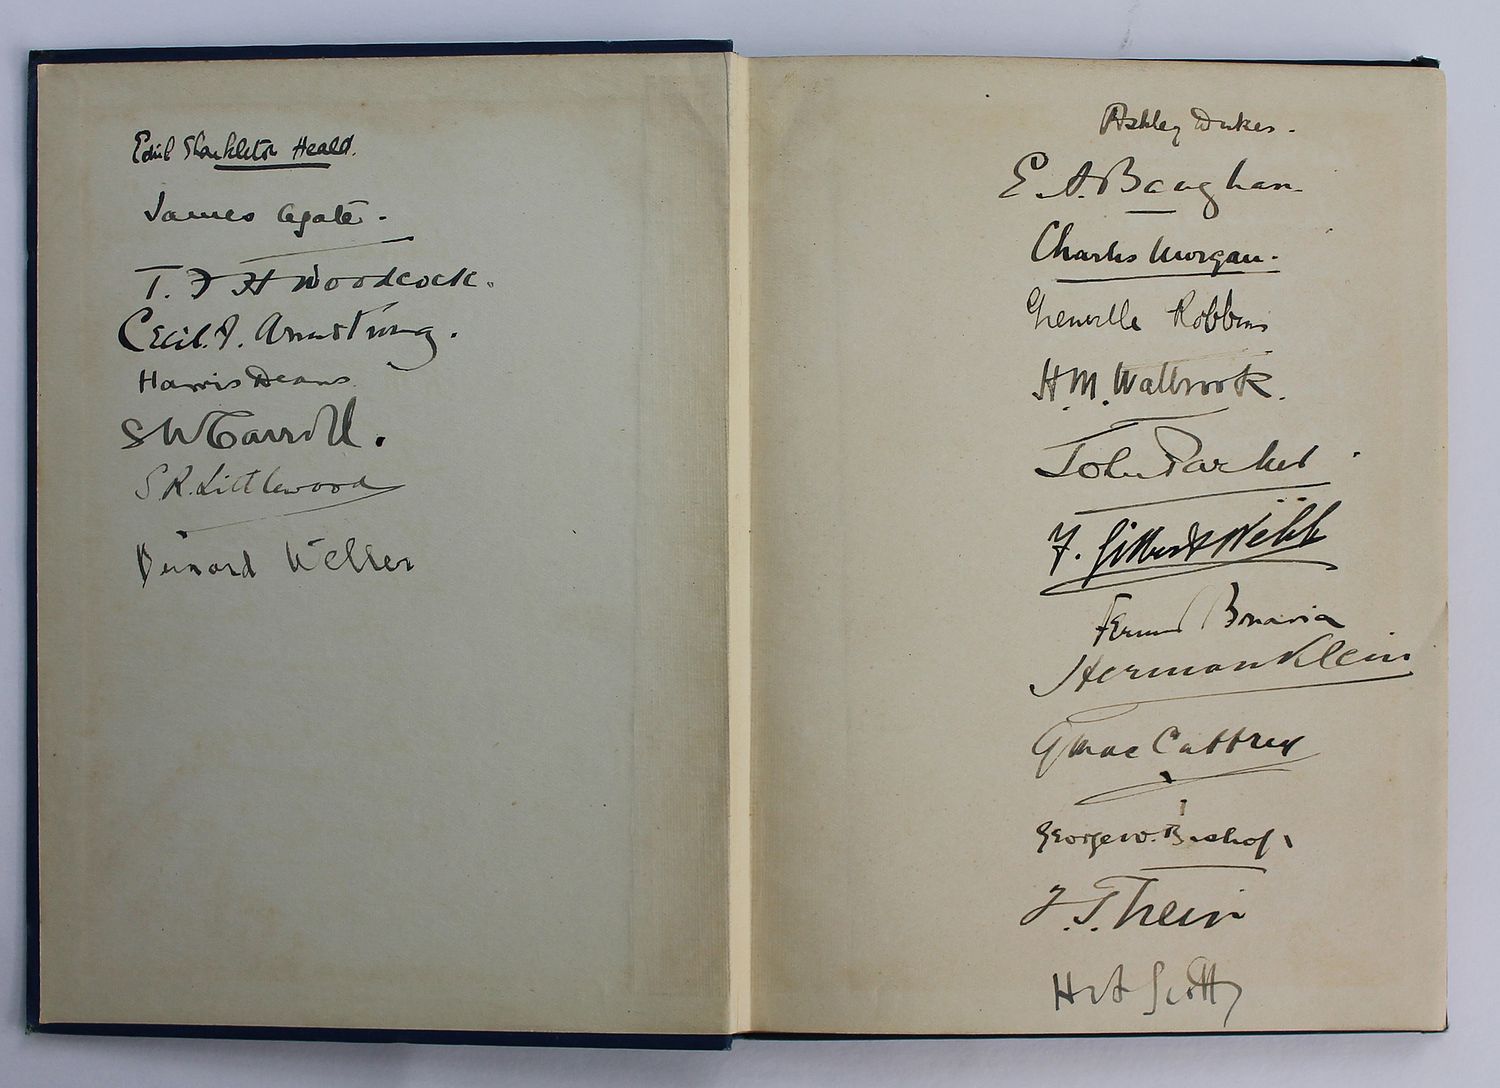 Edith Shackleton Heald.
James Agate.
T. F H Woodcock.
Cecil. F. Armstrong.
Harris Deans.
S W Carroll.
S R. Littlewood
Bernard Weller
Ashley Dukes.
E. A. Baughan.
Charles Morgan.
Grenville Robbins
H. M. Walbrook.
John Parker.
F. Gilbert Webb
Ferruccio Bonavia
Herman Klein
George W. Bishop.
H A Scott